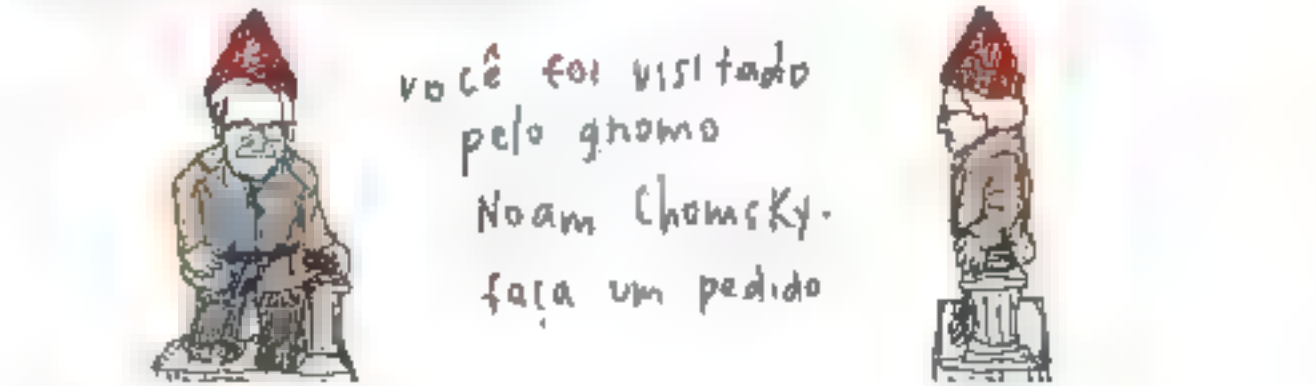 você foi visitado
pelo gnomo
Noam Chomsky.
faça um pedido